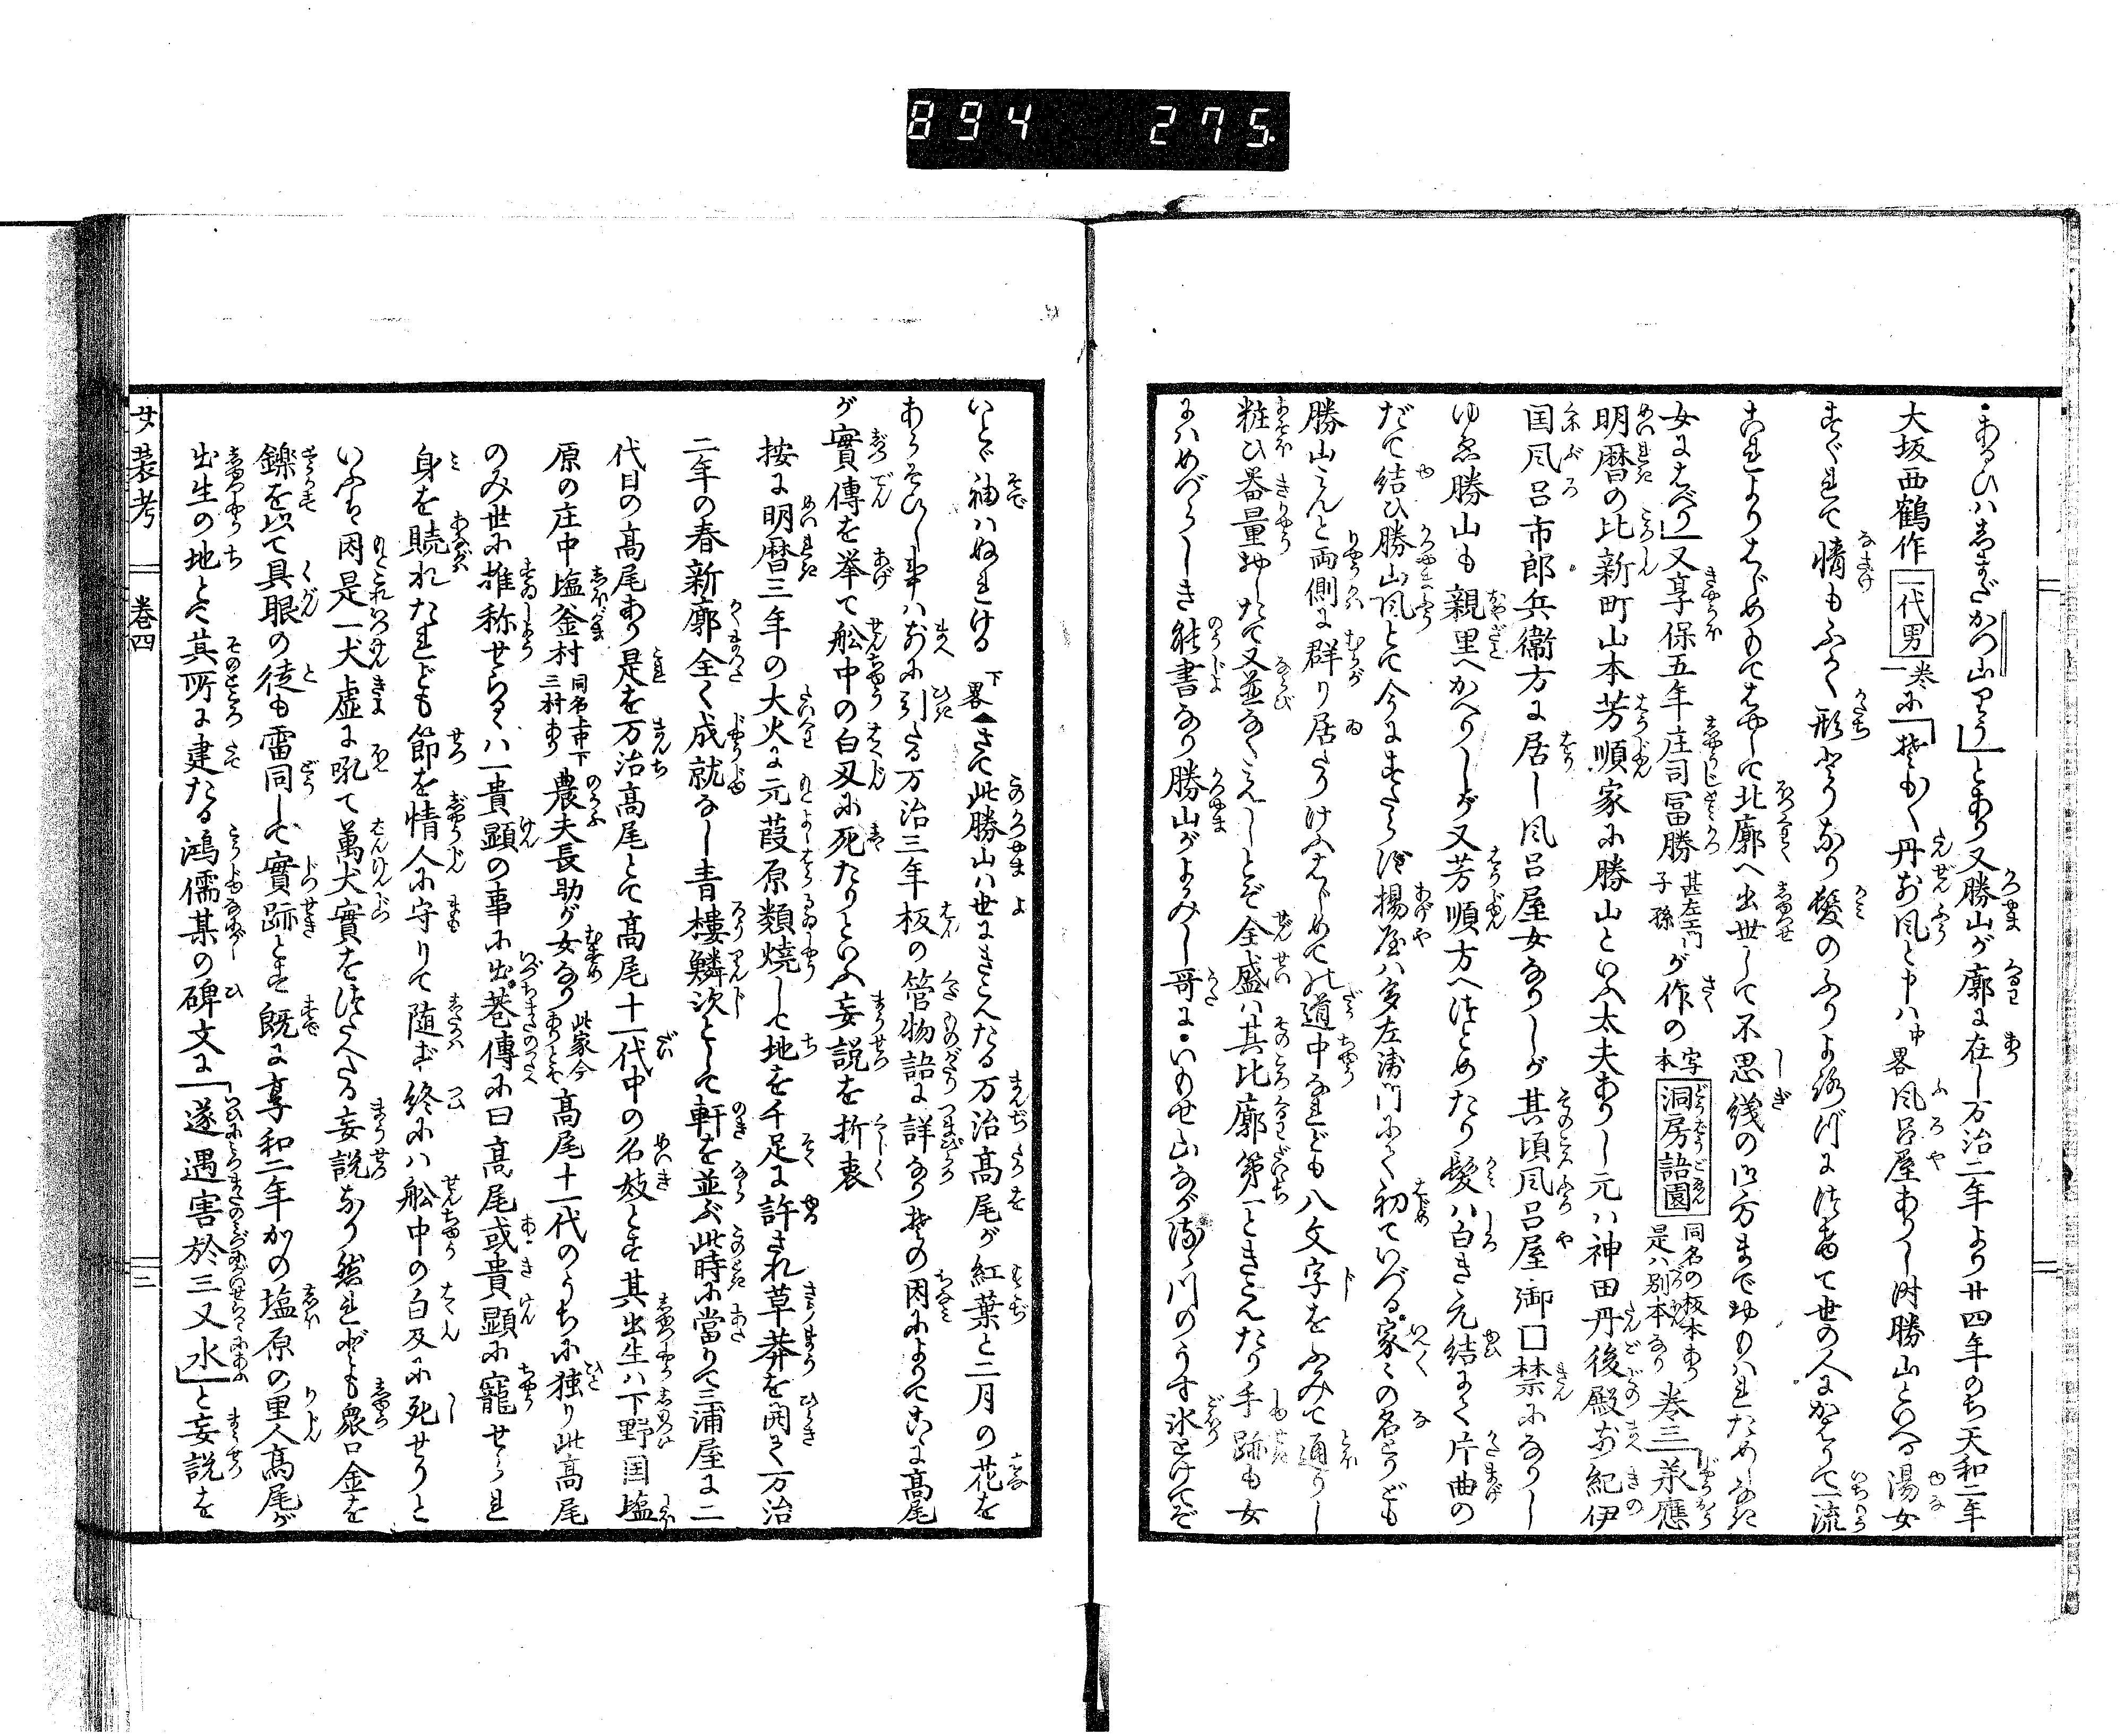 894 275
・あるひハしまだかつ山りう」とあり又勝山が廓に在し万治二年より廿四年のち天和二年
大坂西鶴作一代男一巻に「そも〳〵丹前風と申ハ中略風呂屋ありし時勝山といへる湯女
すぐれて情もふかく形とりなり髪のふりよろづにつけて世の人にかはりて一流
これよりはじめもてはやして北廓へ出世して不思議の御方までおもハれためしなき
女にはべり」又享保五年庄司冨勝甚左エ門子孫が作の写本洞房語園同名の板本あり是ハ別本なり巻三「承應
明暦の比新町山本芳順家に勝山といふ太夫ありし元ハ神田丹後殿前紀伊
国風呂市郎兵衞方に居し風呂屋女なりしが其頃風呂屋御囗禁になりし
ゆゑ勝山も親里へかへりしが又芳順方へつとめたり髪ハ白き元結にて片曲の
だて結ひ勝山風とて今にすたらず揚屋ハ多左衛門にて初ていづる家々の名とりども
勝山みんと両側に群り居たりけふはじめての道中なれども八文字をふみて通りし
粧ひ器量おしたて又並なくみえしとぞ全盛ハ其比廓第一ときこえたり手跡も女
にハめづらしき能書なり勝山がよみし哥に・いもせ山ながるゝ川のうす氷とけてぞ
いとゞ袖ハぬれける下略▲さて此勝山ハ世にきこえたる万治高尾が紅葉と二月の花を
あらそひし事ハ前に引たる万治三年板の管物語に詳なりその因によりてこゝに高尾
が實傳を挙て舩中の白刄に死たりといふ妄説を折衷
按に明暦三年の大火に元葭原類焼して地を千足に許され草莽を開き万治
二年の春新廓全く成就なし青樓鱗次として軒を並ぶ此時に當りて三浦屋に二
代目の高尾あり是を万治高尾とて高尾十一代中の名妓とす其出生ハ下野国塩
原の庄中塩釜村同名上中下三村あり農夫長助が女なり此家今ありとぞ高尾十一代のうちに独り此高尾
のみ世に推称せらるゝハ一貴顕の事に出巷傳に曰高尾或貴顕に寵せられ
身を贖れたれども節を情人に守りて随ず終にハ舩中の白刄に死せりと
いふハ因是一犬虚に吼て萬犬實をつたへたる妄説なり然れども衆口金を
鑠を以て具眼の徒も雷同して實跡とす既に享和二年かの塩原の里人高尾が
出生の地とて其所に建たる鴻儒某の碑文に「遂遇害於三叉水」と妄説を
女装考 巻四 二